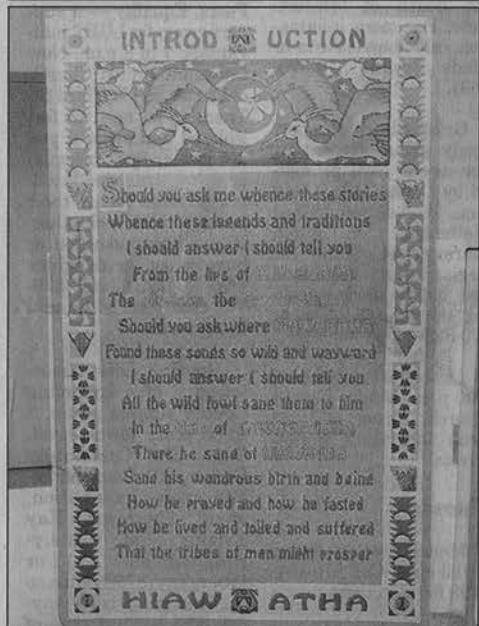 INTROD UCTION
Should you ask me whence these stories
Whence these legends and traditions
I should answer I should tell you
From the lips of
The the
Should you ask where
Found these songs so wild and wayward
I should answer I should tell you
All the wild fowl sang them to him
In the of
There he sang of
Sang his wondrous birth and being
How he prayed and how he fasted
How he lived and toiled and suffered
That the tribes of men might prosper
HIAW ATHA